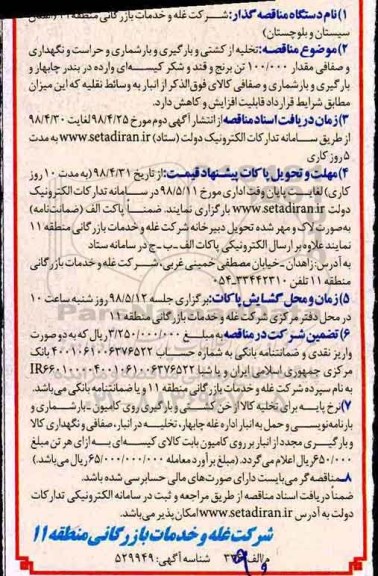 ۱)نام دستگاه مناقصه گذار: شرکت غله و خدمات بازرگانی منطقه ۱۱
سیستان و بلوچستان)
۲)موضوع مناقصه: تخلیه از کشتی و بارگیری و بارشماری و حراست و نگهداری
و صفافی مقدار ۱۰۰/۰۰۰ تن برنج و قند و شکر کیسه‌ای وارده در بندر چابهار و
بارگیری و بارشماری و صفافی کالای فوق‌الذکر از انبار به وسائط نقلیه که این میزان
مطابق شرایط قرارداد قابلیت افزایش و کاهش دارد.
۳)زمان دریافت اسناد مناقصه از انتشار آگهی دوم مورخ ۹۸/۴/۲۵ لغایت ۹۸/۴/۳۰
از طریق سامانه تدارکات الکترونیک دولت (ستاد) www.setadiran.ir به مدت
۵ روز کاری
۴)مهلت و تحویل پاکات پیشنهاد قیمت: از تاریخ ۹۸/۴/۳۱ (به مدت ۱۰ روز
کاری) لغایت پایان وقت اداری مورخ ۹۸/۵/۱۱ در سامانه تدارکات الکترونیک
دولت www.setadiran.ir بارگزاری نمایند. ضمناً پاکت الف (ضمانت‌نامه)
به‌صورت لاک و مهر شده تحویل دبیرخانه شرکت غله و خدمات بازرگانی منطقه ۱۱
نمایند علاوه بر ارسال الکترونیکی پاکات الف-ب-ج در سامانه ستاد
به آدرس: زاهدان-خیابان مصطفی خمینی غربی، شرکت غله و خدمات بازرگانی
منطقه ۱۱ تلفن ۳۳۴۴۲۳۱۰-۰۵۴
۵)زمان و محل گشایش پاکات: برگزاری جلسه ۹۸/۵/۱۲ روز شنبه ساعت ۱۰
در محل دفتر مرکزی شرکت غله و خدمات بازرگانی منطقه ۱۱
۶)تضمین شرکت در مناقصه به مبلغ ۳/۲۵۰/۰۰۰/۰۰۰ ریال که به دو صورت
واریز نقدی و ضمانتنامه بانکی به شماره حساب ۴۰۰۱۰۶۱۰۰۶۳۷۶۵۲۲ بانک
مرکزی جمهوری اسلامی ایران و یا شبا
به نام سپرده شرکت غله و خدمات بازرگانی منطقه ۱۱ و یا ضمانتنامه بانکی می‌باشد.
۷)نرخ پایه برای تخلیه کالا از خن کشتی و بارگیری روی کامیون-بارشماری و
بارنامه‌نویسی و حمل به انبار اداره غله چابهار، تخلیه در انبار، صفافی و نگهداری کالا
و بارگیری مجدد از انبار بر روی کامیون بابت کالای کیسه‌ای به ازای هر تن مبلغ
۶۵۰/۰۰۰ ریال اعلام می‌گردد. (مبلغ برآورد معامله ۶۵/۰۰۰/۰۰۰/۰۰۰ ریال می‌باشد.)
۸-مناقصه‌گر می‌بایست دارای صورت‌های مالی حسابرسی شده باشد.
ضمناً دریافت اسناد مناقصه از طریق مراجعه و ثبت در سامانه الکترونیکی تدارکات
دولت به آدرس www.setadiran.ir امکان‌پذیر می‌باشد.
شرکت غله و خدمات بازرگانی منطقه ۱۱
م/الف: شناسه آگهی: ۵۲۹۹۴۹